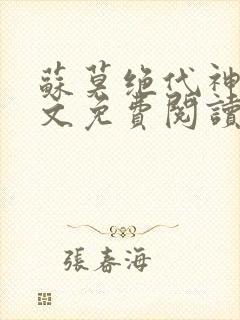 蘇莫绝代神
文免費閱讀
張春海